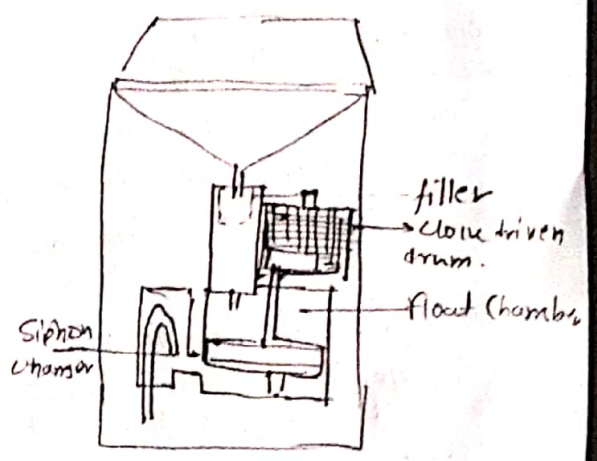 filler
Clock driven
drum.
float Chamber
Siphon
Chamger